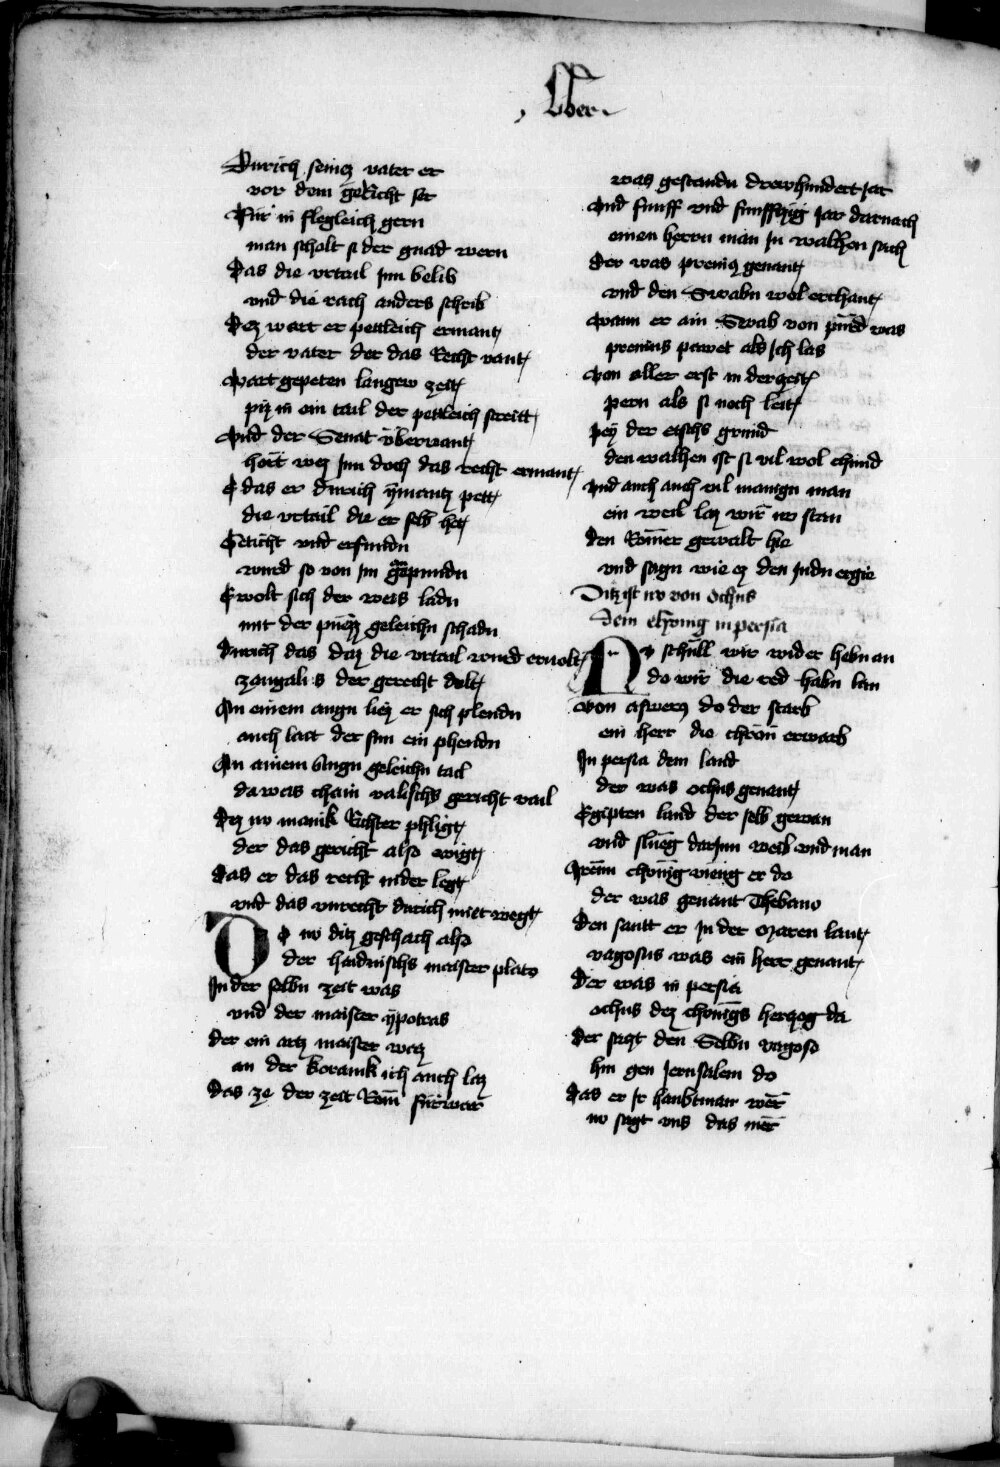 Liber
Durich seinez vater er
vor dem gericht ser
Für in flegleich gern
man scholt si der gnad wern
Das die vrtail inn belib
vnd die rach anders schrib
Dez wart er petleich ermant
der vater der das Recht vant
Wart gepeten langew zeit
piz in ein tail der petleich streitt
Vnd der Senat überwant
hört wez inn doch das recht ermant
E das er durich ÿmantz pett
die vrtail die er selb het
Geticht vnd erfundn
wurd so von im
E wolt sich der weis ladn
mit der püezz geleichn schadn
Durich das daz die vrtail wurd ervolt
zaugalis der gerecht dolt
An einem augn liez er sich plendn
auch latt der sun ein phendn
An ainem augn geleichn tail
da was chain valischs gericht vail
Dez nv manik Richter phligt
der das gericht also wigt
Das er das recht nider legt
vnd das vnrecht durich miet wegt
Do nv ditz geschach also
der haidnischs maister plato
In der selbn zeit was
vnd der maister ÿpotras
der ein artz maister waz
an der koranik ich auch laz
Das ze der zeit Rom fürwar
was gestandn drewhundert jar
Vnd funff vnd funffczig jar darnach
einen herrn man in walhen sach
Der was prenius genant
vnd den Swabn wol erchant
Wann er ain Swab von purd was
prenius pawet als ich las
Von aller erst in der zeit
pern als si noch leit
peÿ der etschs grund
den walhen ist si vil wol chund
Vnd auch auch vil manign man
ein weil laz wir nv stan
Den Römer gewalt hie
vnd sagn wie ez den judn ergie
Ditz ist nv von Ochus
dem chönig in persia
Nv schull wir wider hebn an
do wir die red habn lan
Von asweros do der starb
ein herr die chron erwarb
In persia dem land
der was ochus genant
Egipten land der selb gewan
vnd slueg darinn weib vnd man
Irenn chönig vieng er do
der was genant Thebano
Den santt er in der Maren lant
vagosus was ein herr genant
Der was in persia
ochus dez chönigs herzog da
der sazt den Selbn vagoso
hin gen Jerusalem do
Das er ir haubtman wer
nv sagt vns das mer